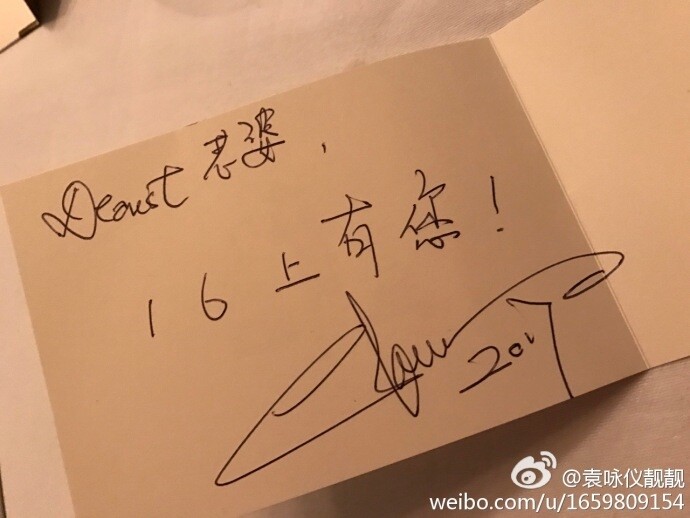 Dearest 老婆，
16上有您！
2017
@袁咏仪靓靓
weibo.com/u/1659809154